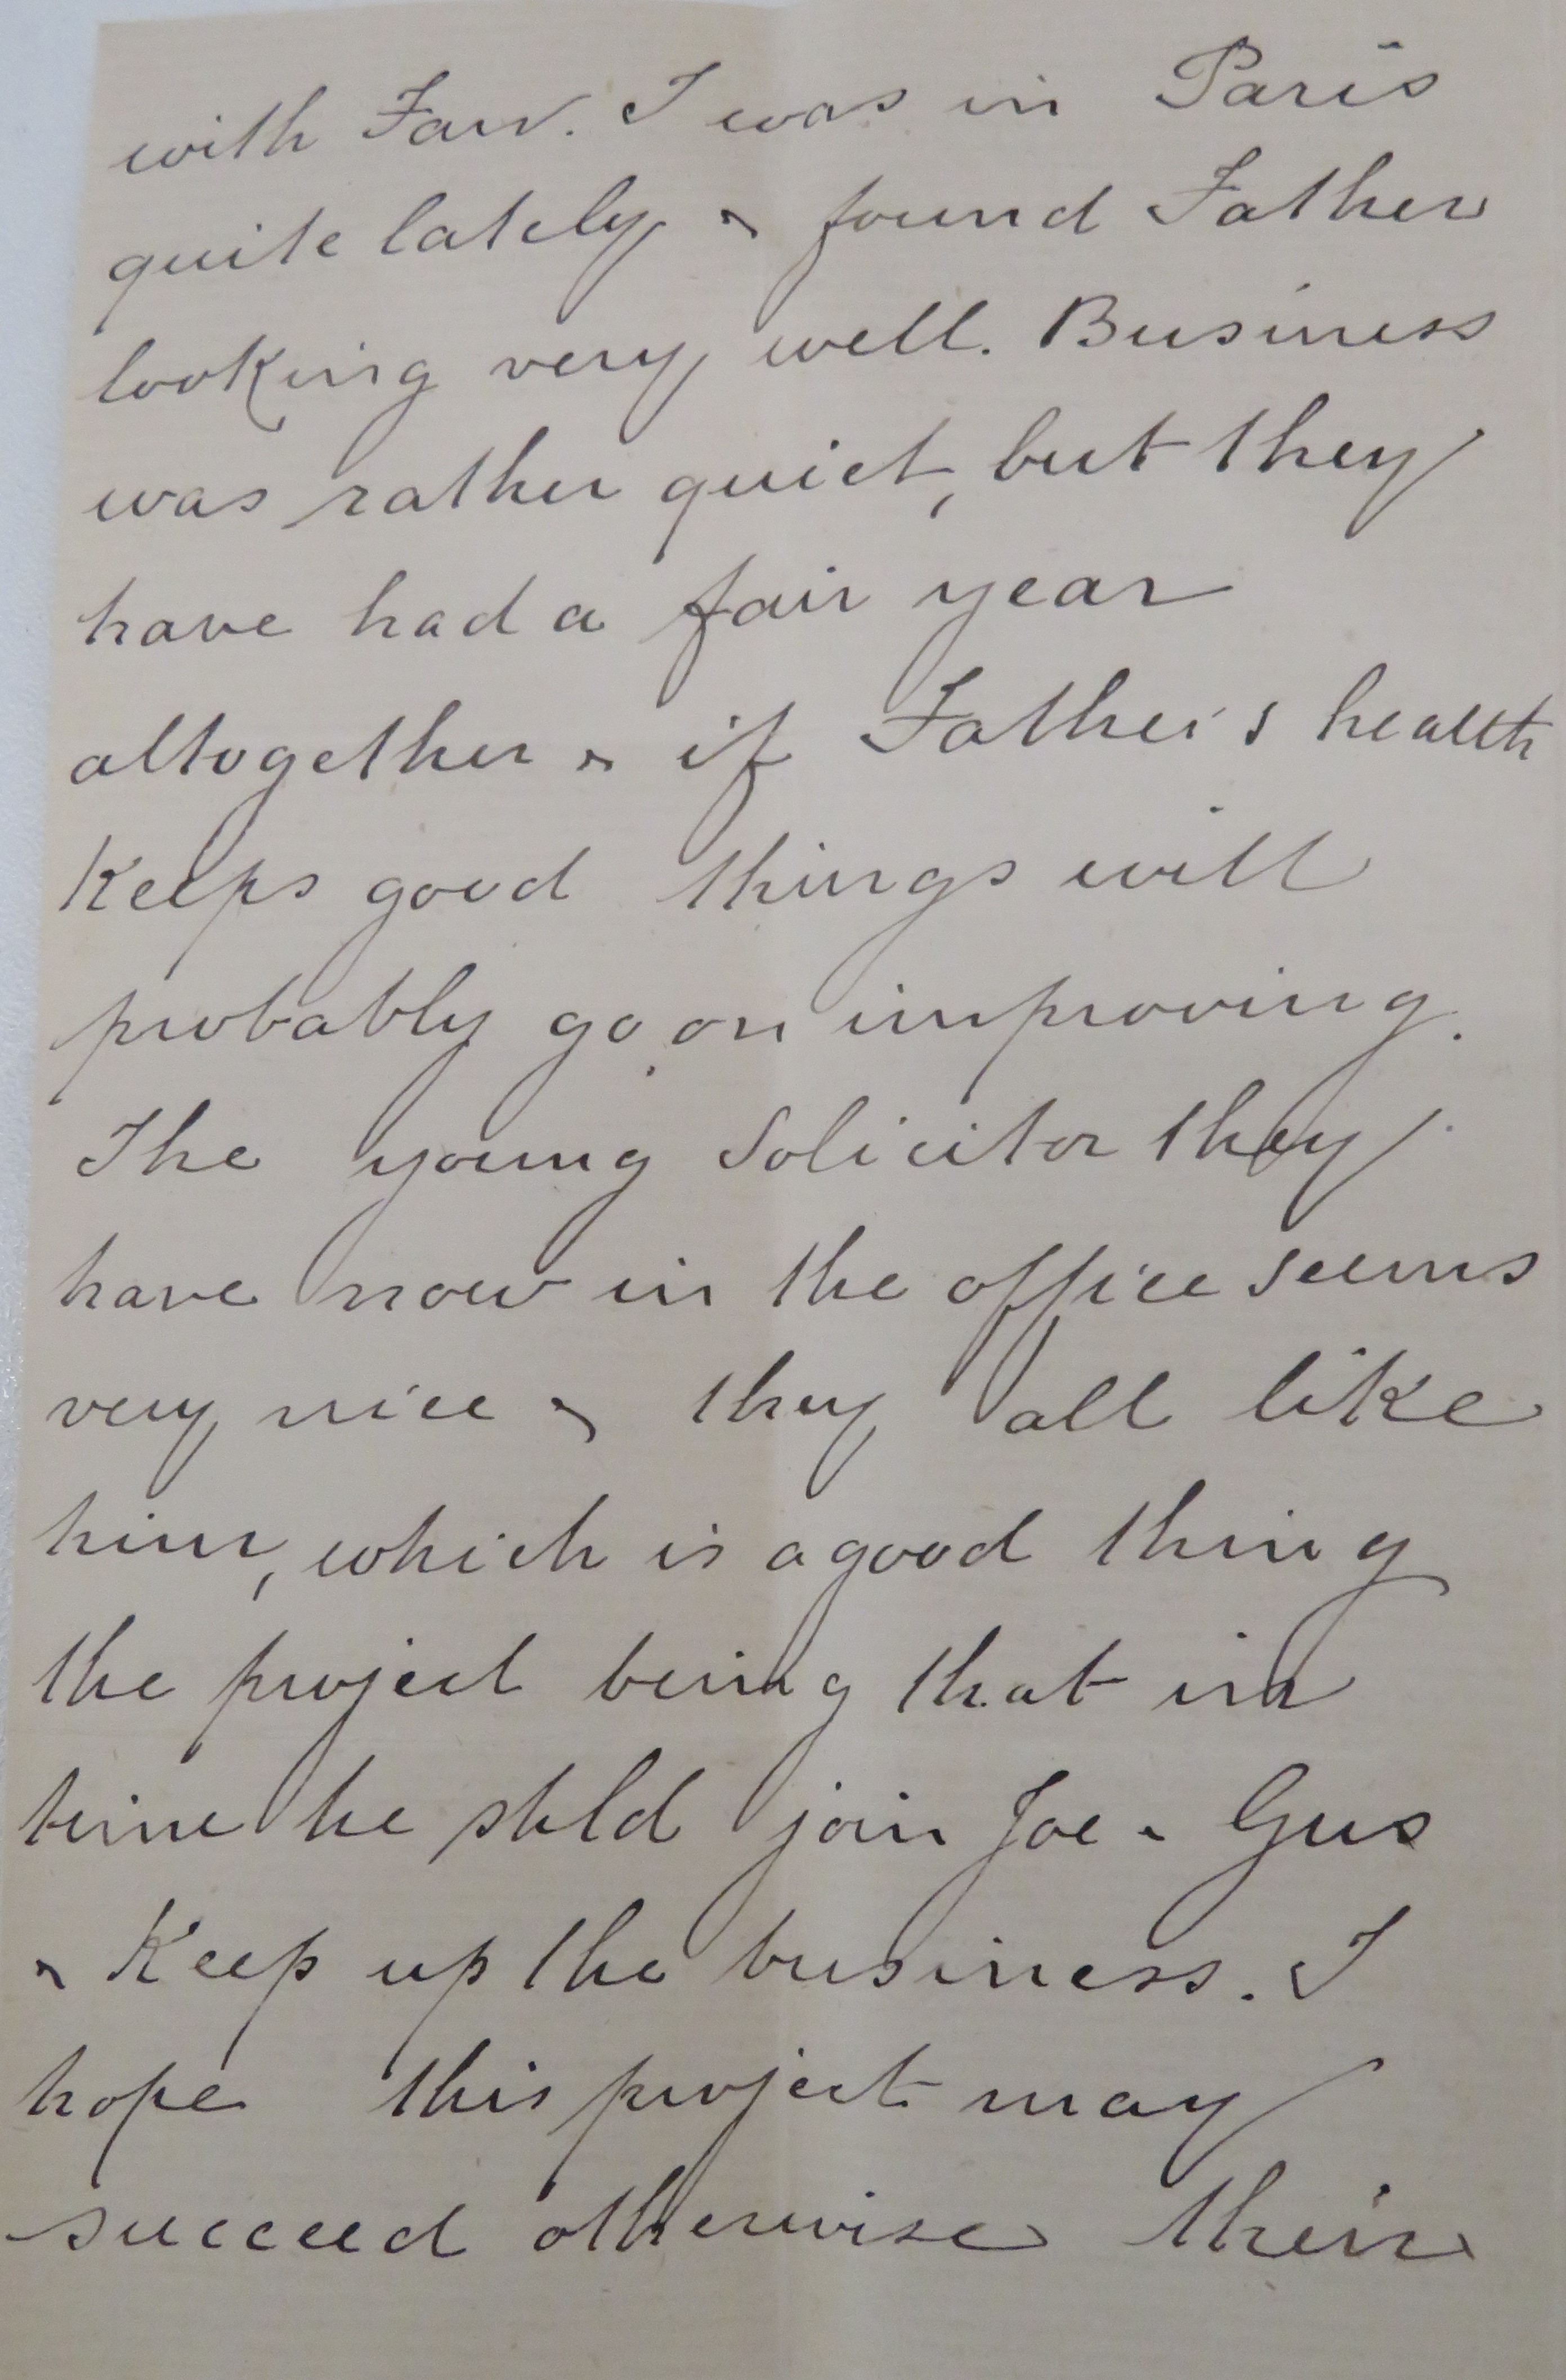 with Fan. I was in Paris
quite lately & found Father
looking very well. Business
was rather quiet, but they
have had a fair year
altogether & if Father's health
Keeps good things will
probably go on improving.
The young Solicitor they
have now in the office seems
very nice & they all like
him, which is a good thing
the project being that in
time he shld join Joe & Gus
& Keep up the business. I
hope this project may
succeed otherwise their